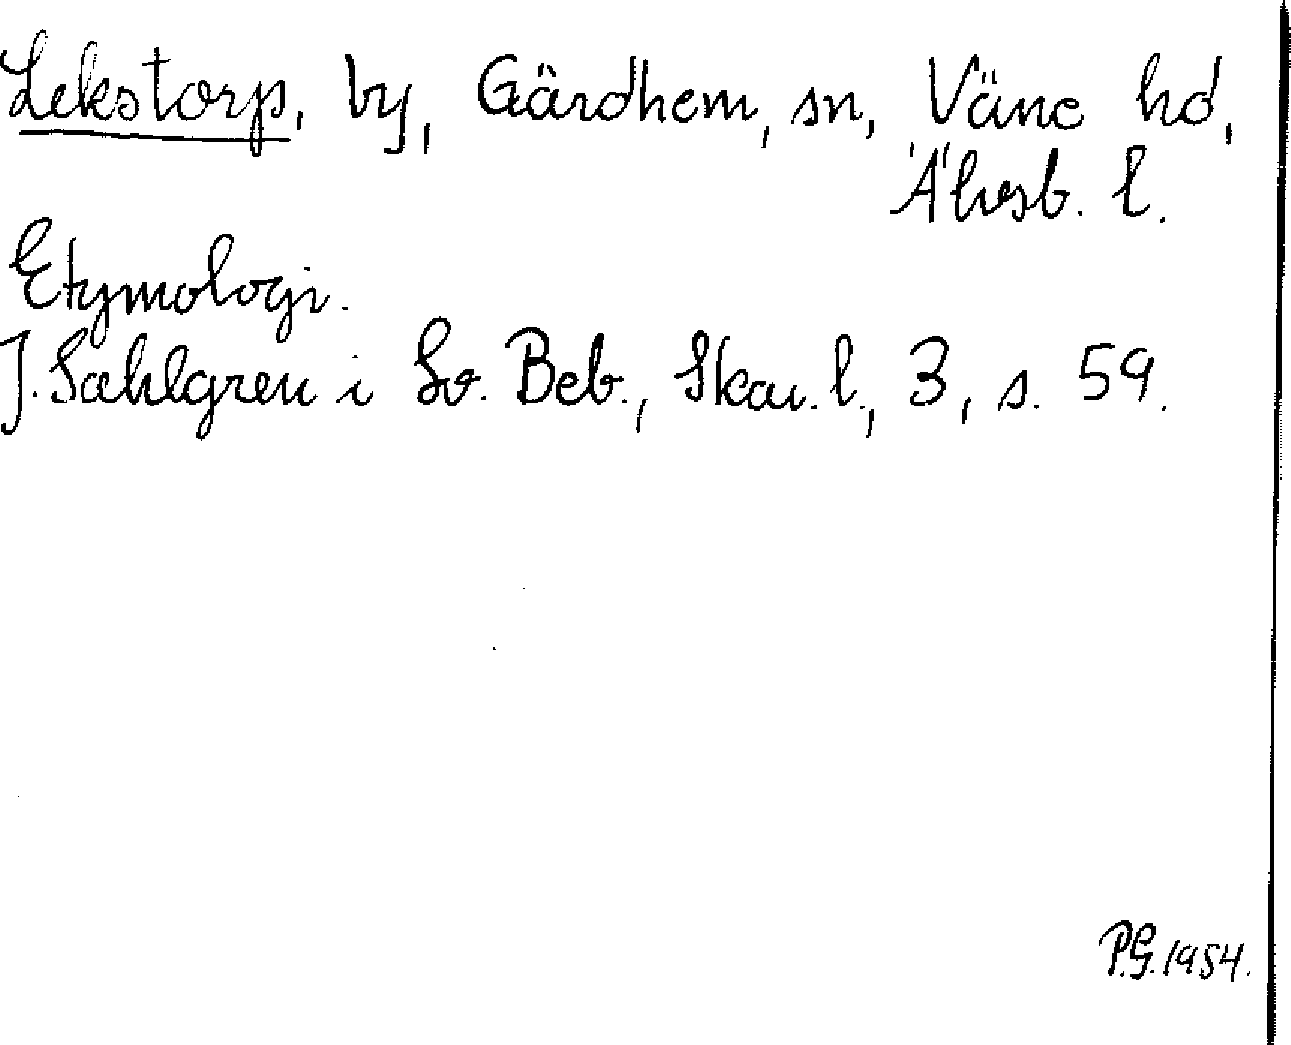 Lekstorp, by, Gärdhem, sn, Väne hd,
Älvsb. l.
Etymologi.
J. Sahlgren i Sv. Beb., Skar. l., 3, s. 59.
P.G. 1954.